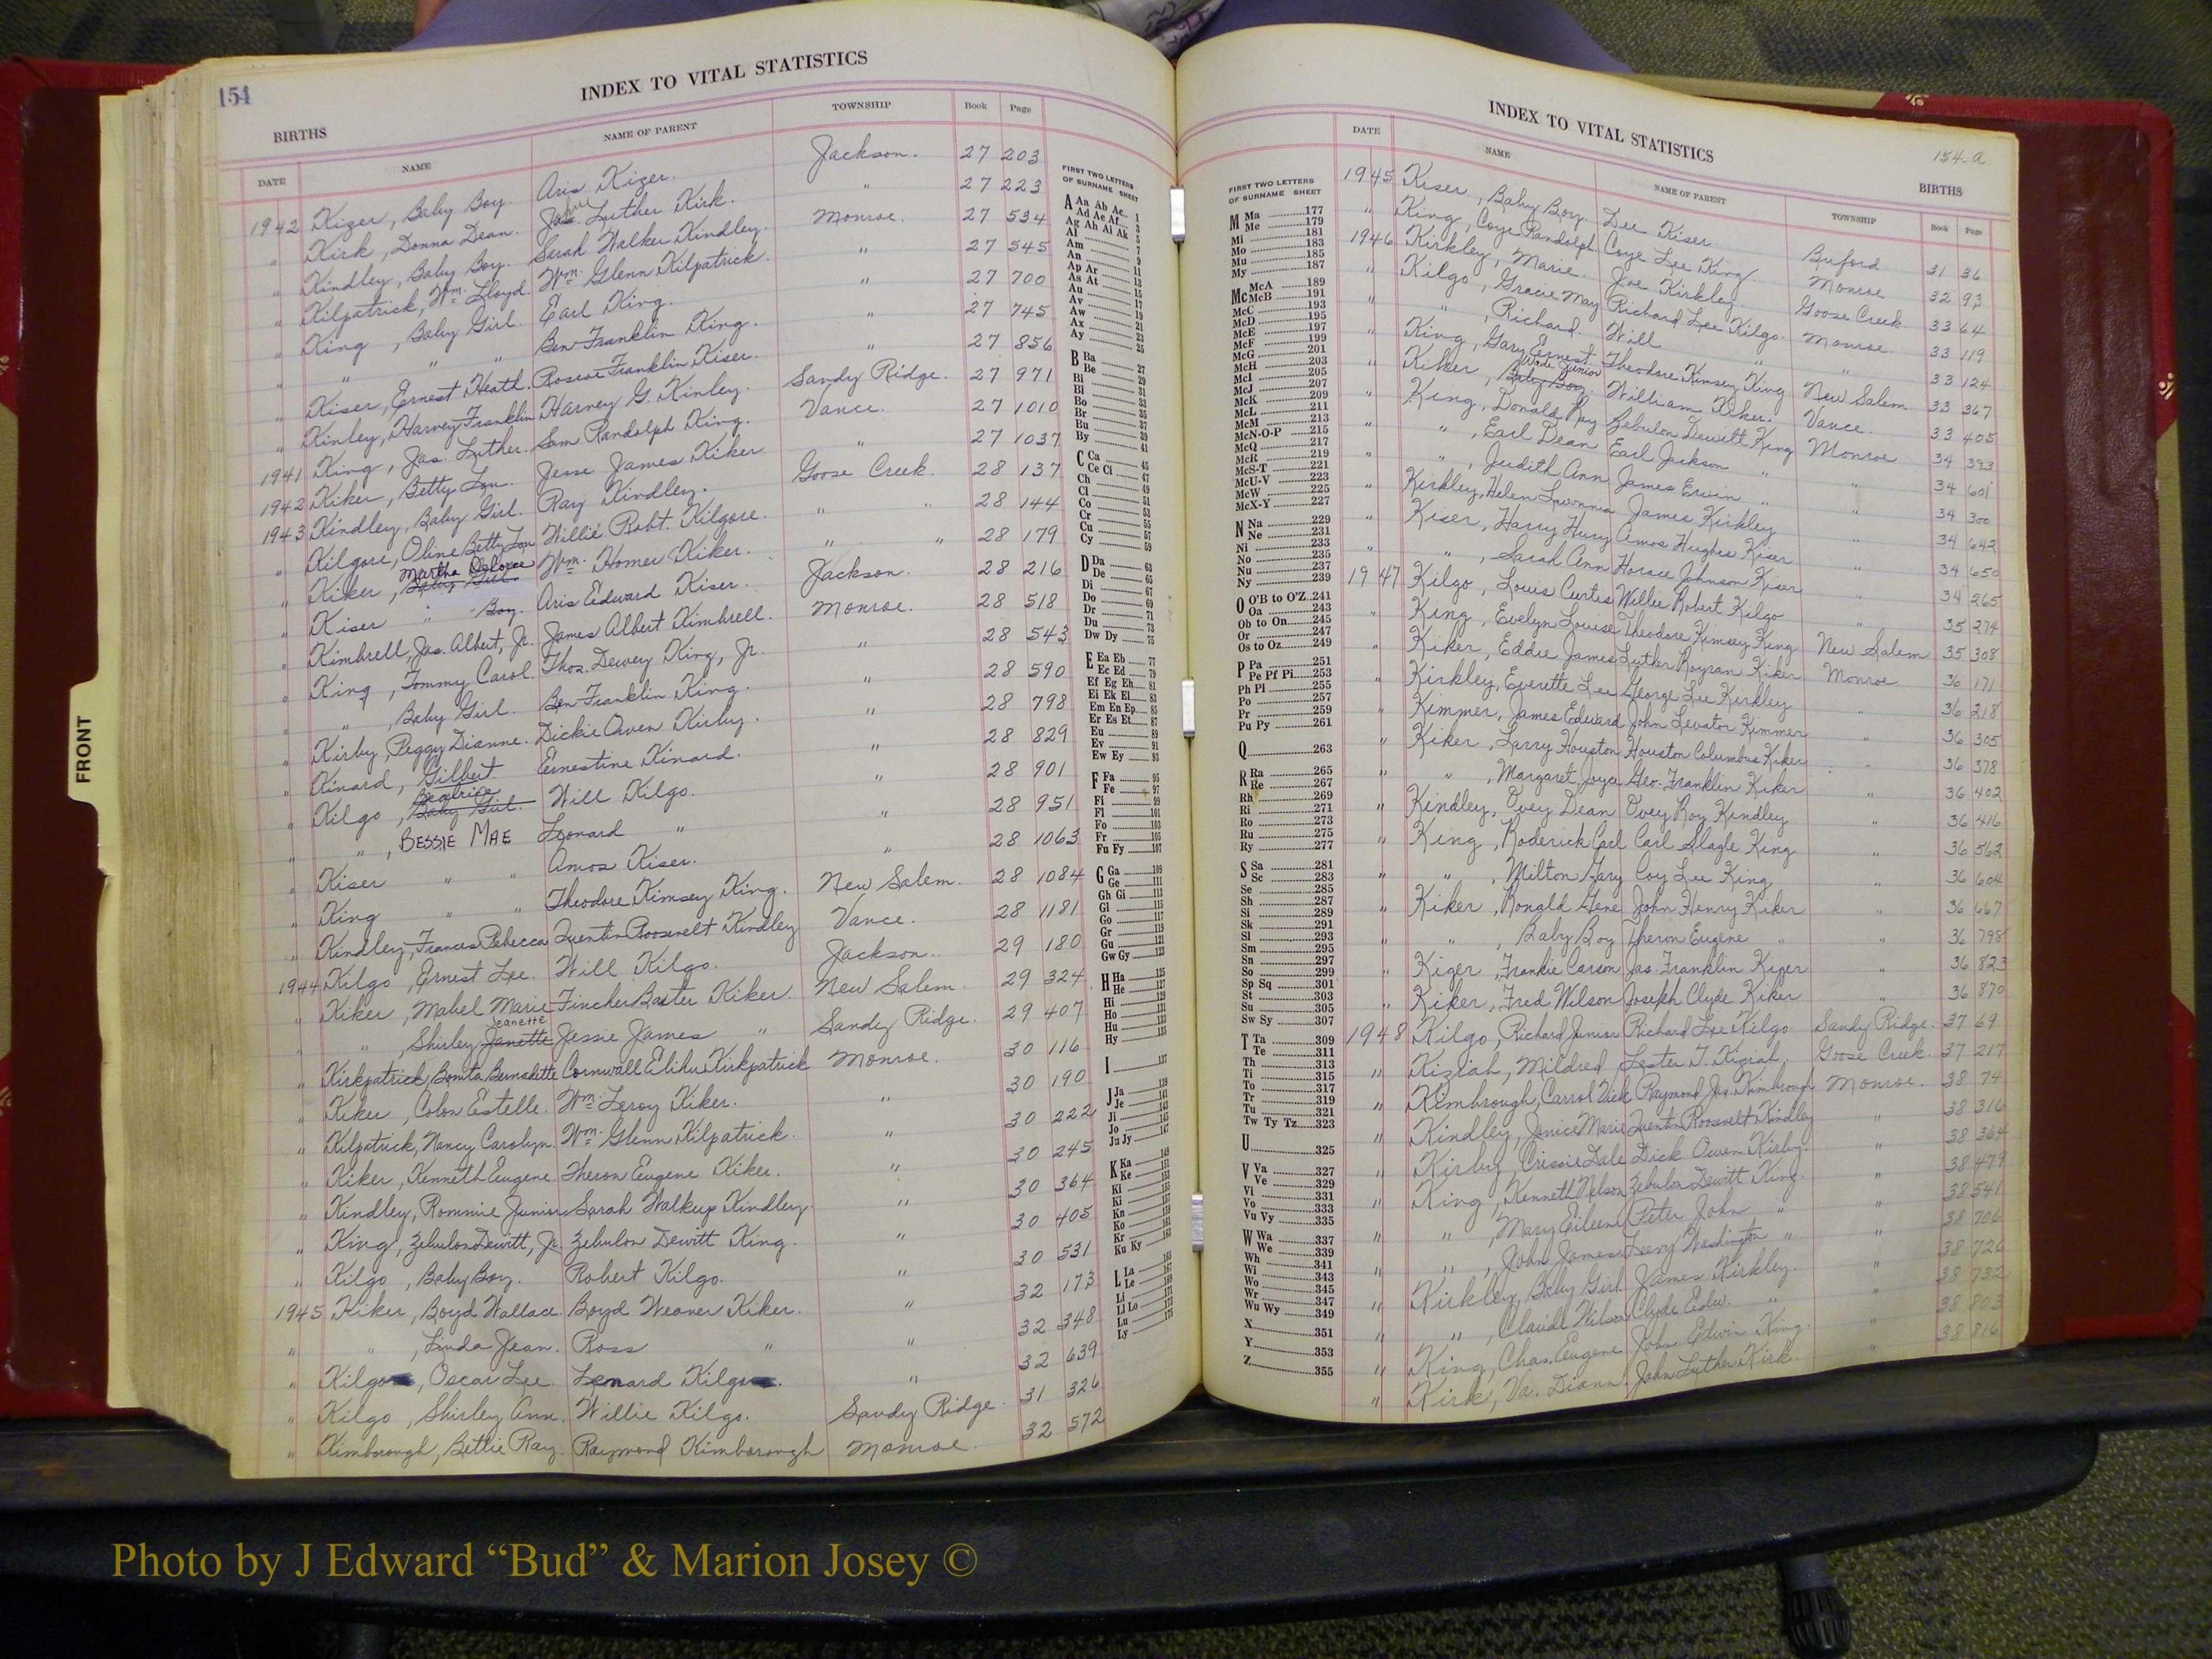 154
INDEX TO VITAL STATISTICS
BIRTHS
DATE NAME NAME OF PARENT TOWNSHIP Book Page
1942 Kizer, Baby Boy. Aris Kizer. Jackson. 27 203
" Kirk, Donna Dean. John Luther Kirk. " 27 223
" Kindley, Baby Boy. Sarah Walker Kindley. Monroe. 27 534
" Kilpatrick, Wm. Lloyd. Wm. Glenn Kilpatrick. " 27 545
" King, Baby Girl. Earl King. " 27 700
" " " " Ben Franklin King. " 27 745
" Kiser, Ernest Heath. Roscoe Franklin Kiser. " 27 856
" Kinley, Harvey Franklin Harvey G. Kinley. Sandy Ridge. 27 971
1941 King, Jas. Luther. Sam Randolph King. Vance. 27 1010
1942 Kiker, Betty Lou. Jesse James Kiker " 27 1037
1943 Kindley, Baby Girl. Ray Kindley. Goose Creek. 28 137
" Kilgore, Oline Betty Lou Willie Robt. Kilgore. " " 28 144
" Kiker, Martha Delorce Baby Girl. Wm. Homer Kiker. " " 28 179
" Kiser " Boy. Aris Edward Kiser. Jackson. 28 216
" Kimbrell, Jas. Albert, Jr. James Albert Kimbrell. Monroe. 28 518
" King, Tommy Carol. Thos. Dewey King, Jr. " 28 543
" " , Baby Girl. Ben Franklin King. " 28 590
" Kirby, Peggy Dianne. Dickie Owen Kirby. " 28 798
" Kinard, Gilbert. Ernestine Kinard. " 28 829
" Kilgo, Beatrice Baby Girl. Will Kilgo. " 28 901
" " , BESSIE MAE Leonard " " 28 951
" Kiser " " Amos Kiser. " 28 1063
" King " " Theodore Kimsey King. New Salem. 28 1084
" Kindley, Frances Rebecca Quentin Roosevelt Kindley Vance. 28 1181
1944 Kilgo, Ernest Lee. Will Kilgo. Jackson. 29 180
" Kiker, Mabel Marie Fincher Baxter Kiker. New Salem. 29 324
" " , Shirley Jeanette Janette Jessie James " Sandy Ridge. 29 407
" Kirkpatrick, Bonita Bernadette Cornwall Elihu Kirkpatrick Monroe. 30 116
" Kiker, Colon Estelle. Wm. Leroy Kiker. " 30 190
" Kilpatrick, Nancy Carolyn. Wm. Glenn Kilpatrick. " 30 222
" Kiker, Kenneth Eugene. Theron Eugene Kiker. " 30 245
" Kindley, Rommie Junior Sarah Walkup Kindley. " 30 364
" King, Zebulon Dewitt, Jr. Zebulon Dewitt King. " 30 405
" Kilgo, Baby Boy. Robert Kilgo. " 30 531
1945 Kiker, Boyd Wallace Boyd Weaver Kiker. " 32 173
" " , Linda Jean. Ross " " 32 348
" Kilgo, Oscar Lee. Lenard Kilgo. " 32 639
" Kilgo, Shirley Ann. Willie Kilgo. Sandy Ridge. 31 326
" Kimborough, Bettie Ray. Raymond Kimborough Monroe. 32 572
FIRST TWO LETTERS
OF SURNAME SHEET
A Aa Ab Ac 1
Ad Ae Af 3
Ag Ah Ai Ak 5
Al 7
Am 9
An 11
Ap Ar 13
As At 15
Au 17
Av 19
Aw 21
Ax 23
Ay 25
B Ba 27
Be 29
Bi 31
Bl 33
Bo 35
Br 37
Bu 39
By 41
C Ca 45
Ce Ci 47
Ch 49
Cl 51
Co 53
Cr 55
Cu 57
Cy 59
D Da 63
De 65
Di 67
Do 69
Dr 71
Du 73
Dw Dy 75
E Ea Eb 77
Ec Ed 79
Ef Eg Eh 81
Ei Ek El 83
Em En Ep 85
Er Es Et 87
Eu 89
Ev 91
Ew Ey 93
F Fa 95
Fe 97
Fi 99
Fl 101
Fo 103
Fr 105
Fu Fy 107
G Ga 109
Ge 111
Gh Gi 113
Gl 115
Go 117
Gr 119
Gu 121
Gw Gy 123
H Ha 125
He 127
Hi 129
Ho 131
Hu 133
Hy 135
I 137
J Ja 139
Je 141
Ji 143
Jo 145
Ju Jy 147
K Ka 149
Ke 151
Ki
Kl
Kn
Ko
Kr
Ku Ky 163
L La 165
Le 167
Li
Ll Lo
Lu 173
Ly 175
FRONT
INDEX TO VITAL STATISTICS
154-a.
BIRTHS
DATE NAME NAME OF PARENT TOWNSHIP Book Page
1945 Kiser, Baby Boy. Lee Kiser. Buford 31 36
" King, Coye Randolph Coye Lee King Monroe 32 93
1946 Kirkley, Marie. Joe Kirkley. Goose Creek. 33 64
" Kilgo, Gracie May Richard Lee Kilgo. Monroe. 33 119
" " , Richard. Will " 33 124
" King, Gary Ernest Theodore Kimsey King New Salem 33 367
" Kiker, Wade Junior Baby Boy. William Kiker. Vance. 33 405
" King, Donald Ray Zebulon Dewitt King Monroe 34 393
" " , Earl Dean Earl Jackson " " 34 601
" " , Judith Ann James Ervin " " 34 300
" Kirkley, Helen Lavonna James Kirkley " 34 642
" Kiser, Harry Hury Amos Hughes Kiser " 34 650
" " , Sarah Ann Horace Johnson Kiser " 34 265
1947 Kilgo, Louis Curtis Willie Robert Kilgo " 35 274
" King, Evelyn Louise Theodore Kimsey King New Salem 35 308
" Kiker, Eddie James Luther Roysan Kiker Monroe 36 171
" Kirkley, Everette Lee George Lee Kirkley " 36 218
" Kimmer, James Edward John Levstor Kimmer " 36 305
" Kiker, Larry Houston Houston Columbus Kiker " 36 378
" " , Margaret Joyce Geo. Franklin Kiker " 36 402
" Kindley, Ovey Dean Ovey Roy Kindley " 36 416
" King, Roderick Carl Carl Slagle King " 36 562
" " , Milton Gary Coy Lee King " 36 604
" Kiker, Ronald Gene John Henry Kiker " 36 667
" " , Baby Boy Theron Eugene " " 36 798
" Kiger, Frankie Carson Jas. Franklin Kiger " 36 823
" Kiker, Fred Wilson Joseph Clyde Kiker " 36 870
1948 Kilgo, Richard Junior Richard Lee Kilgo Sandy Ridge. 37 69
" Kiziah, Mildred Lester T. Kiziah. Goose Creek. 37 217
" Kimbrough, Carrol Dick Raymond Jas. Kimbrough Monroe. 38 74
" Kindley, Janice Marie Quentin Roosevelt Kindley " 38 316
" Kirby, Crissie Dale Dick Owen Kirby. " 38 364
" King, Kenneth Nelson Zebulon Dewitt King. " 38 479
" " , Mary Eileen Peter John " " 38 541
" " , John James Leevy Washington " " 38 706
" Kirkley, Baby Girl James Kirkley. " 38 726
" " , Claude Wilson Clyde Edw. " " 38 732
" King, Chas. Eugene John Edwin King. " 38 803
" Kirk, Va. Diann. John Luther Kirk. " 38 816
FIRST TWO LETTERS
OF SURNAME SHEET
M Ma 177
Me 179
Mi 181
Mo 183
Mu 185
My 187
Mc McA 189
McB 191
McC 193
McD 195
McE 197
McF 199
McG 201
McH 203
McI 205
McJ 207
McK 209
McL 211
McM 213
McN-O-P 215
McQ 217
McR 219
McS-T 221
McU-V 223
McW 225
McX-Y 227
N Na 229
Ne 231
Ni 233
No 235
Nu 237
Ny 239
O O'B to O'Z 241
Oa 243
Ob to On 245
Or 247
Os to Oz 249
P Pa 251
Pe Pf Pi 253
Ph Pl 255
Po 257
Pr 259
Pu Py 261
Q 263
R Ra 265
Re 267
Rh 269
Ri 271
Ro 273
Ru 275
Ry 277
S Sa 281
Sc 283
Se 285
Sh 287
Si 289
Sk 291
Sl 293
Sm 295
Sn 297
So 299
Sp Sq 301
St 303
Su 305
Sw Sy 307
T Ta 309
Te 311
Th 313
Ti 315
To 317
Tr 319
Tu 321
Tw Ty Tz 323
U 325
V Va 327
Ve 329
Vi 331
Vo 333
Vu Vy 335
W Wa 337
We 339
Wh 341
Wi 343
Wo 345
Wr 347
Wu Wy 349
X 351
Y 353
Z 355
Photo by J Edward “Bud” & Marion Josey ©